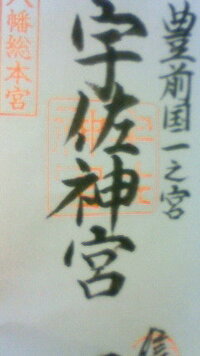 豊前国一之宮
宇佐神宮
八幡総本宮